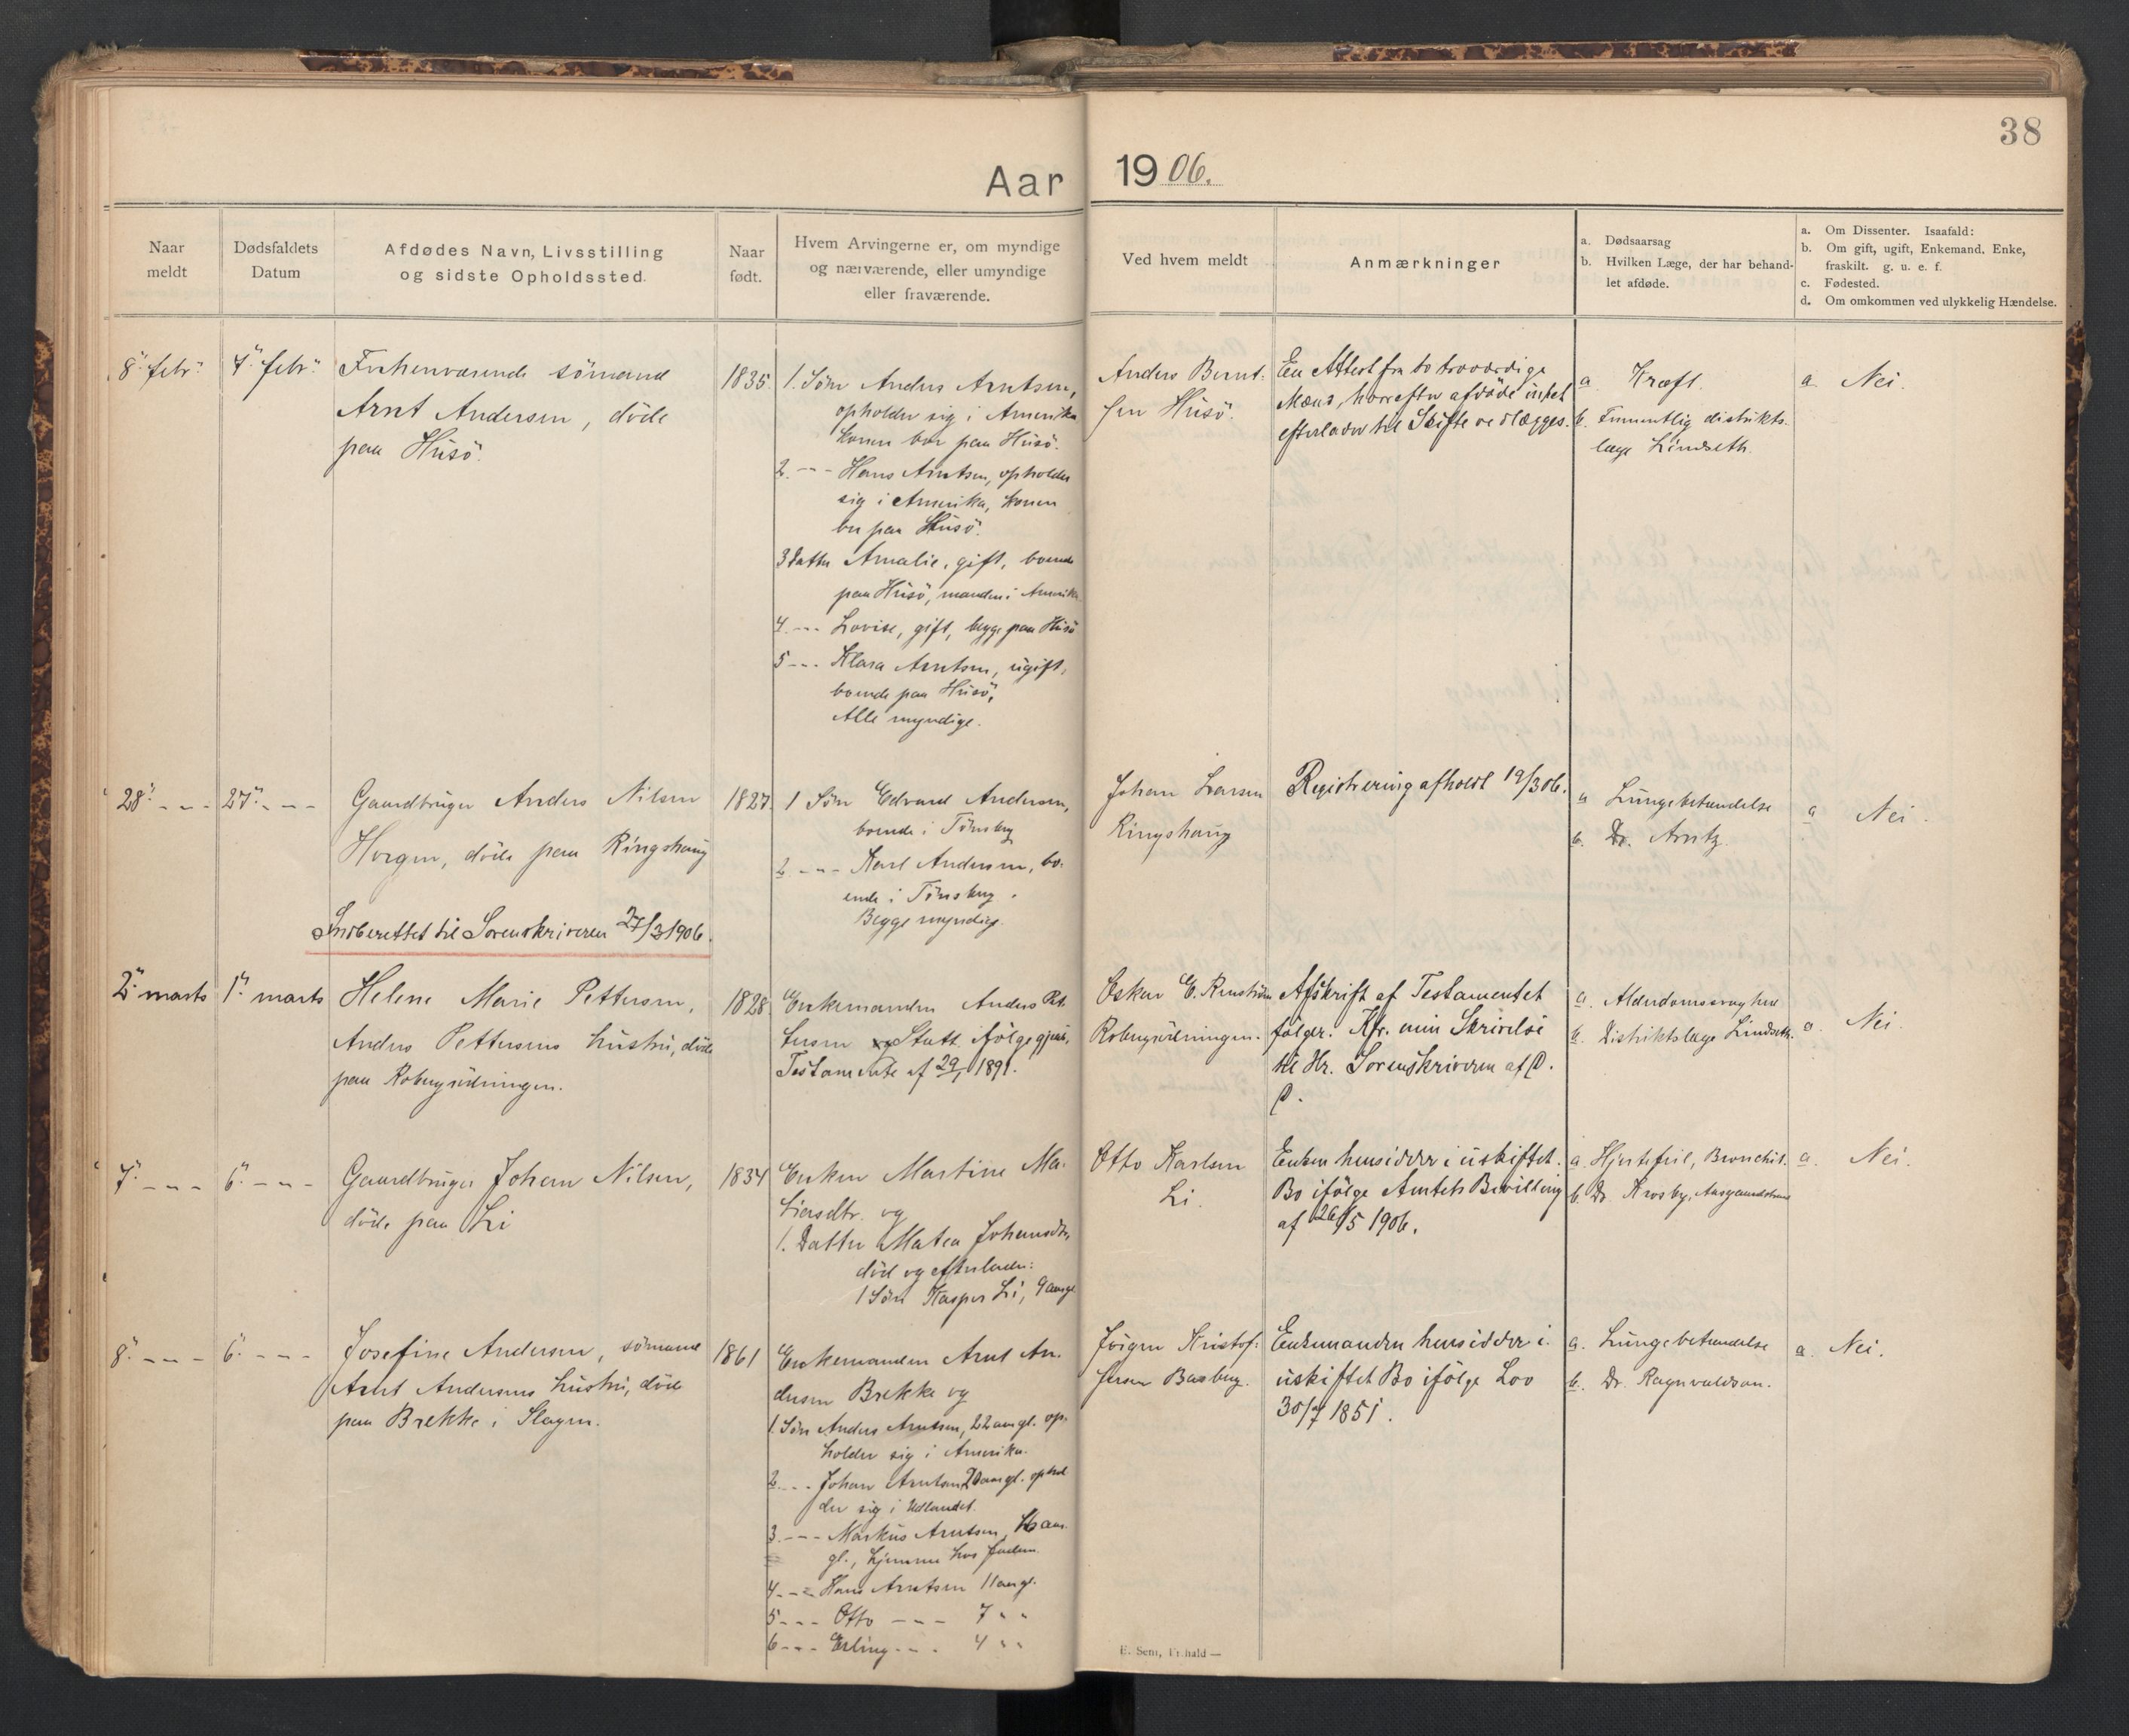 38
Aar 1906.
Naar meldt
Dødsfaldets Datum
Afdødes Navn, Livsstilling og sidste Opholdssted.
Naar født.
Hvem Arvingerne er, om myndige og nærværende, eller umyndige eller fraværende.
Ved hvem meldt
Anmærkninger
a. Dødsaarsag
b. Hvilken Læge, der har behandlet afdøde.
a. Om Dissenter. Isaafald:
b. Om gift, ugift, Enkemand, Enke, fraskilt. g. u. e. f.
c. Fødested.
d. Om omkommen ved ulykkelig Hændelse.
8. febr. 7. febr.
Forhenværende sömand
Arnt Andersen, döde
paa Husö.
1835.
1. Sön Anders Arntsen,
opholder sig i Amerika
konen bor paa Husö.
2. --- Hans Arntsen, opholder
sig i Amerika, konen
bor paa Husö.
3 Datter Amalie, gift, boende
paa Husö, manden i Amerika
4. --- Lovise, gift, begge paa Husö
5 --- Klara Arntsen, ugift,
boende paa Husö,
Alle myndige.
Anders Bernt-
sen Husö.
En Attest fra to troværdige
Mænd, hvorefter afdöde intet
efterlader til Skifte vedlægges.
a. Kræft.
b. Formentlig distrikts-
læge Lindseth.
a. Nei.
28. --- 27. ---
Gaardbruger Anders Nilsen
Horgen, döde paa Ringshaug
1827.
1 Sön Edvard Andersen,
boende i Tönsberg
2 --- Karl Andersen, bo-
ende i Tönsberg.
Begge myndige.
Johan Larsen
Ringshaug
Registrering afholdt 19/3 06.
a Lungebetændelse
b. Dr. Arntz.
a Nei.
Indberettet til Sorenskriveren 27/3 1906.
2. marts 1. marts
Helene Marie Pettersen,
Anders Pettersens hustru, döde
paa Robergrödningen.
1828.
Enkemanden Anders Pet-
tersen
Testamente af 1891.
Oskar E.
Robergrödningen.
Afskrift af Testamentet
følger. Kfr. min Skrivelse
til Hr. Sorenskriveren af D.
D.
a. Alderdomssvaghed
b. Distriktslæge Lindseth.
a. Nei.
7. --- 6. ---
Gaardbruger Johan Nilsen,
döde paa Li
1834
Enken Martine Ma-
tiasdtr. og
1. Datter Matea Johansdtr,
död og efterlader:
1 Sön Kasper Li, 9 aargl
Otto Karlsen
Li.
Enken hensidder i uskiftet
Bo ifölge Amtets Bevilling
af 26/5 1906.
a. Hjertefeil, Bronchit.
b. Dr. Krosby, Aasgaardstrand
a. Nei.
8. --- 6. ---
Josefine Andersen, sömand
Arnt Andersens hustru, döde
paa Brekke i Slagen.
1861
Enkemanden Arnt An-
dersen Brekke og
1. Sön Anders Arntsen, 22 aargl. op-
holder sig i Amerika.
2. --- Johan Arntsen 20 aargl. ophol
der sig i Udlandet.
3. --- Markus Arntsen, 16 aar-
gl., hjemme hos faderen
4. --- Hans Arntsen 11 aargl.
5 --- Otto --- 7 " "
6 --- Erling --- 4 " "
Jörgen Kristof-
fersen Basberg.
Enkemanden hensidder i
uskiftet Bo ifölge Lov
30/7 1851.
a. Lungebetændelse
b. Dr. Ragnvaldson.
a. Nei.
E. Sem, Fr.hald —